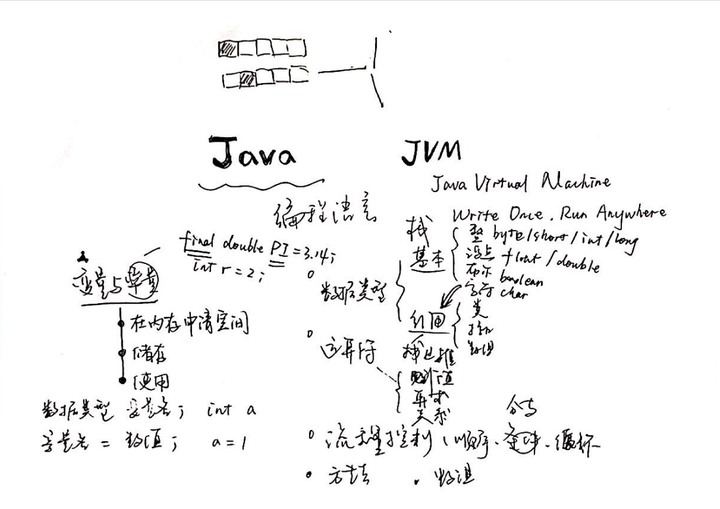 Java
JVM
Java Virtual Machine
编程语言
Write Once, Run Anywhere
final double PI = 3.14;
int r = 2;
变量与常量
在内存中请空间
储存
使用
数据类型 变量名; int a
变量名 = 数值; a = 1
数据类型
栈
基本
整 byte/short/int/long
浮点 float/double
布尔 boolean
字符 char
引用
类
接口
数组
运算符
赋值
算术
关系
分支
流程控制、顺序、条件、循环
方法
数组